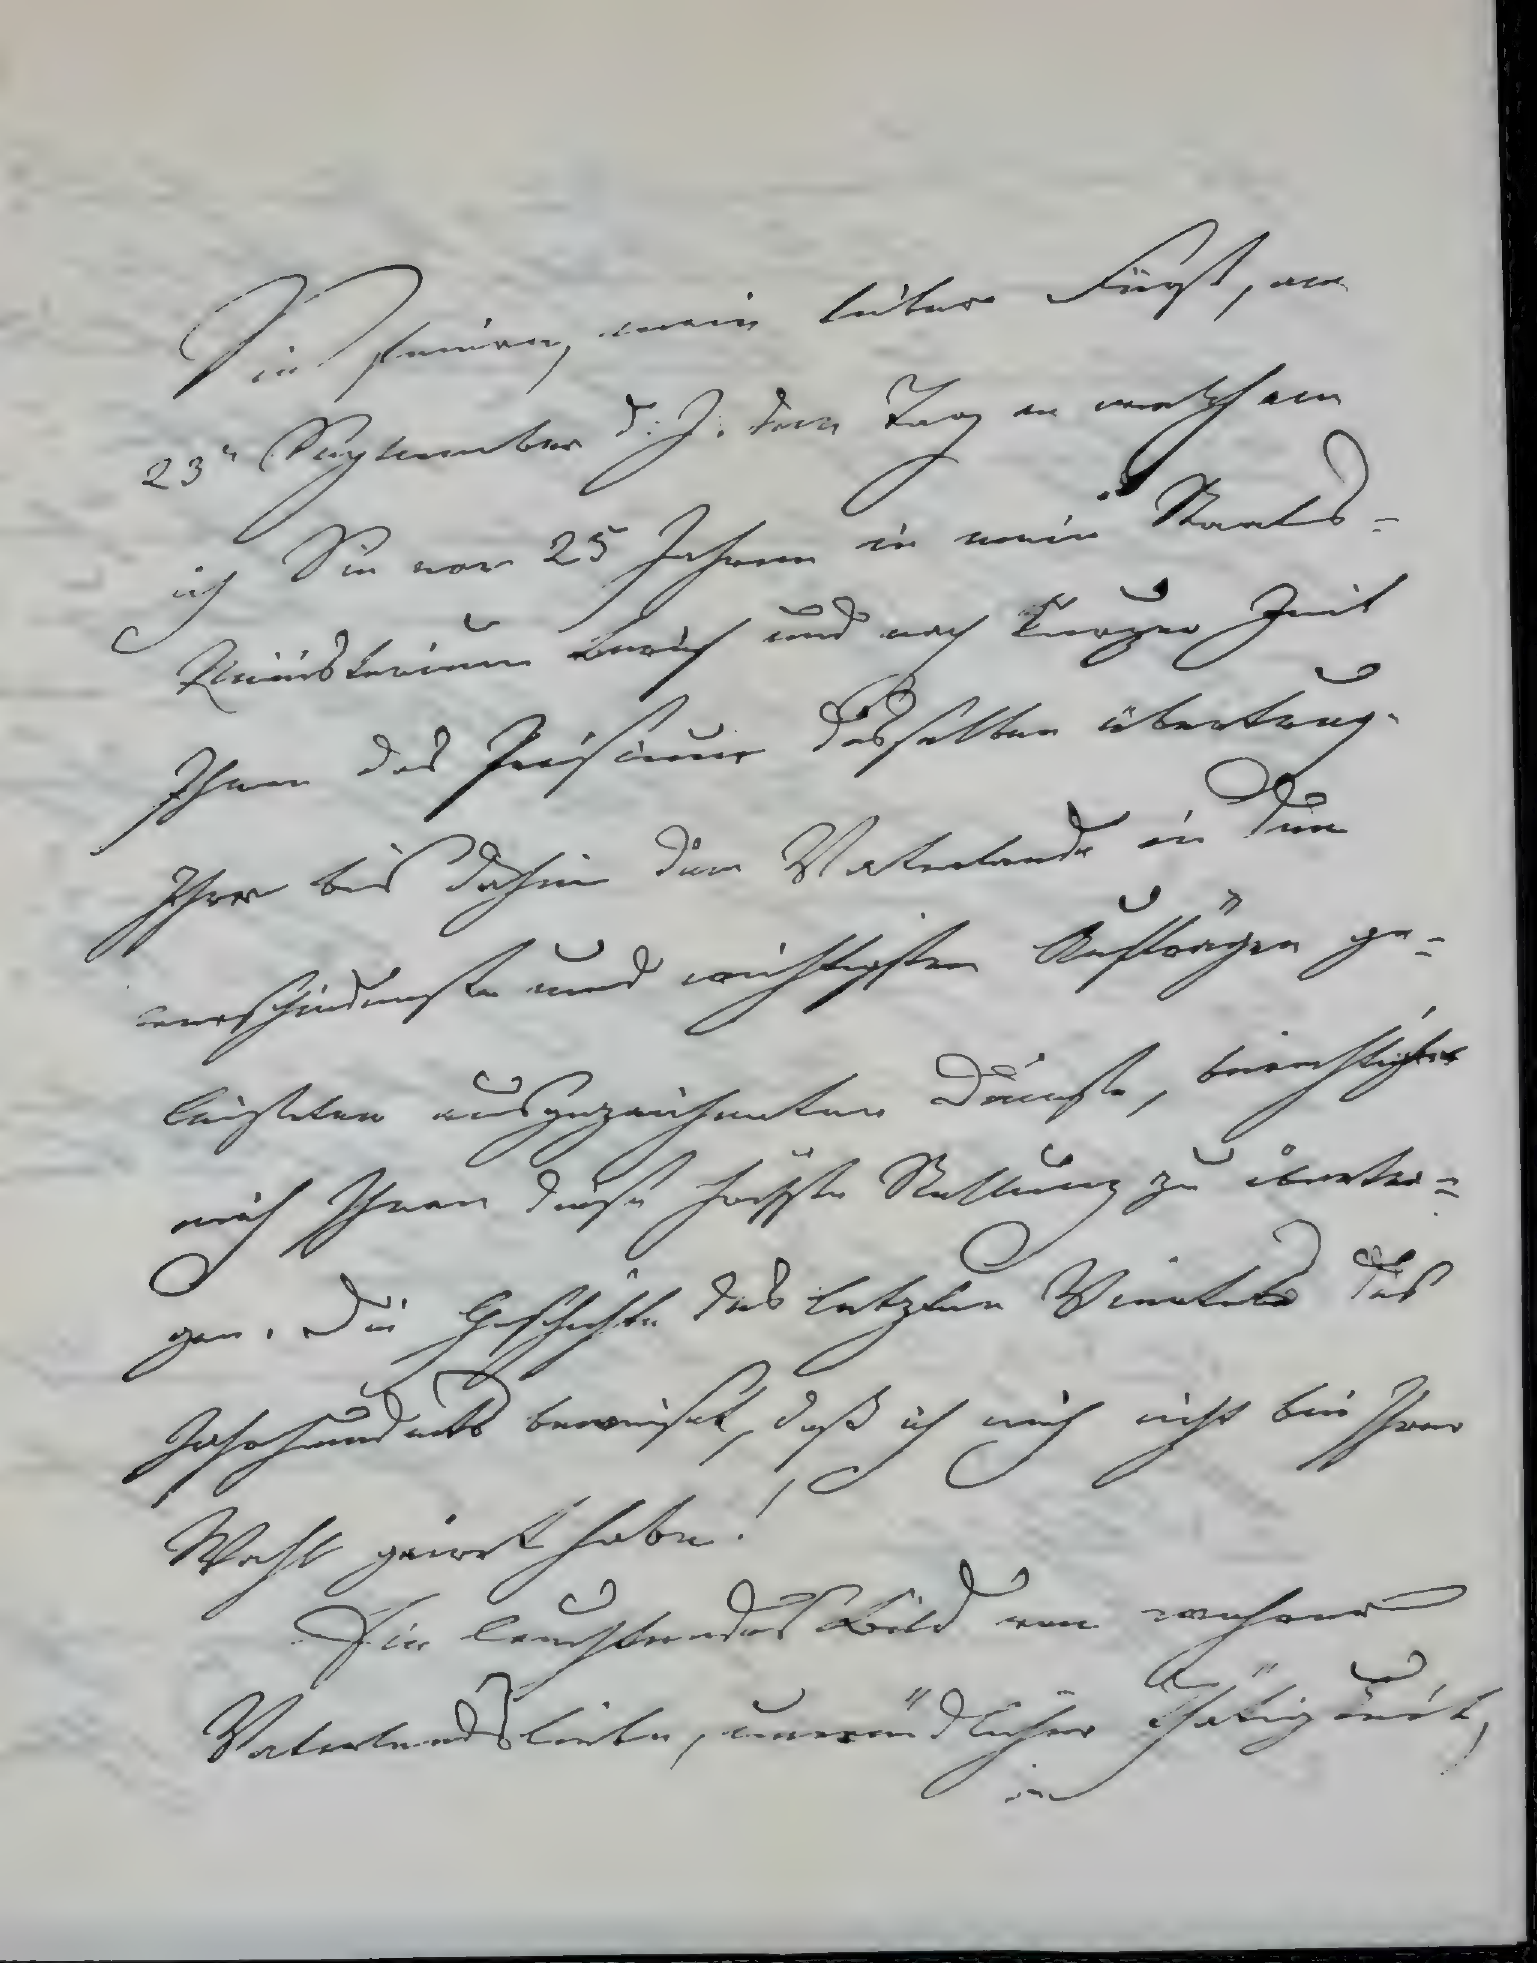 Sie feiern, mein lieber Fürst, am
23n September d: J. den Tag an welchem
ich Sie vor 25 Jahren in mein Staats=
Ministerium berief und nach kurzer Zeit
Ihnen das Präsidium desselben übertrug.
Ihre bis dahin dem Vaterlande in den
verschiedensten und wichtigsten Aufträgen ge=
leisteten ausgezeichneten Dienste, berechtigten
mich Ihnen diese höchste Stellung zu übertra=
gen. Die Geschichte des letzten Viertels des
Jahrhunderts beweiset, daß ich mich nicht bei Ihrer
Wahl geirrt habe!
Ein leuchtendes Bild von wahrer
Vaterlandsliebe, unermüdlicher Thätigkeit,